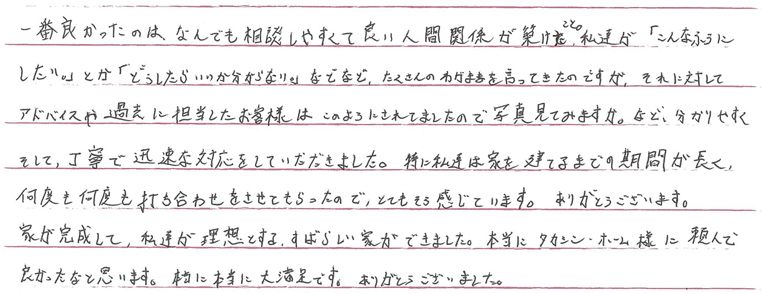 一番良かったのは、なんでも相談しやすくて良い人間関係が築けたこと。私達が「こんなふうに
したい。」とか「どうしたらいいか分からない。」などなど、たくさんのわがままを言ってきたのですが、それに対して
アドバイスや過去に担当したお客様はこのようにされてましたので写真見てみますか。など、分かりやすく
そして、丁寧で迅速な対応をしていただきました。特に私達は家を建てるまでの期間が長く、
何度も何度も打ち合わせをさせてもらったので、とてもそう感じています。ありがとうございます。
家が完成して、私達が理想とする、すばらしい家ができました。本当にタカシン・ホーム様に頼んで
良かったなと思います。本当に本当に大満足です。ありがとうございました。